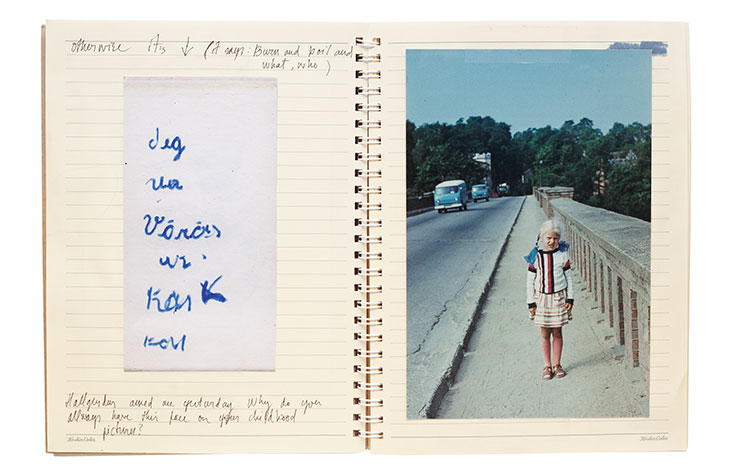 otherwise it is ↓ (it says: Burn and boil and
what, who)
Jeg
var
Värös
ur
Kär K
Kall
asked me yesterday Why do you
always have this face on your childhood
pictures?